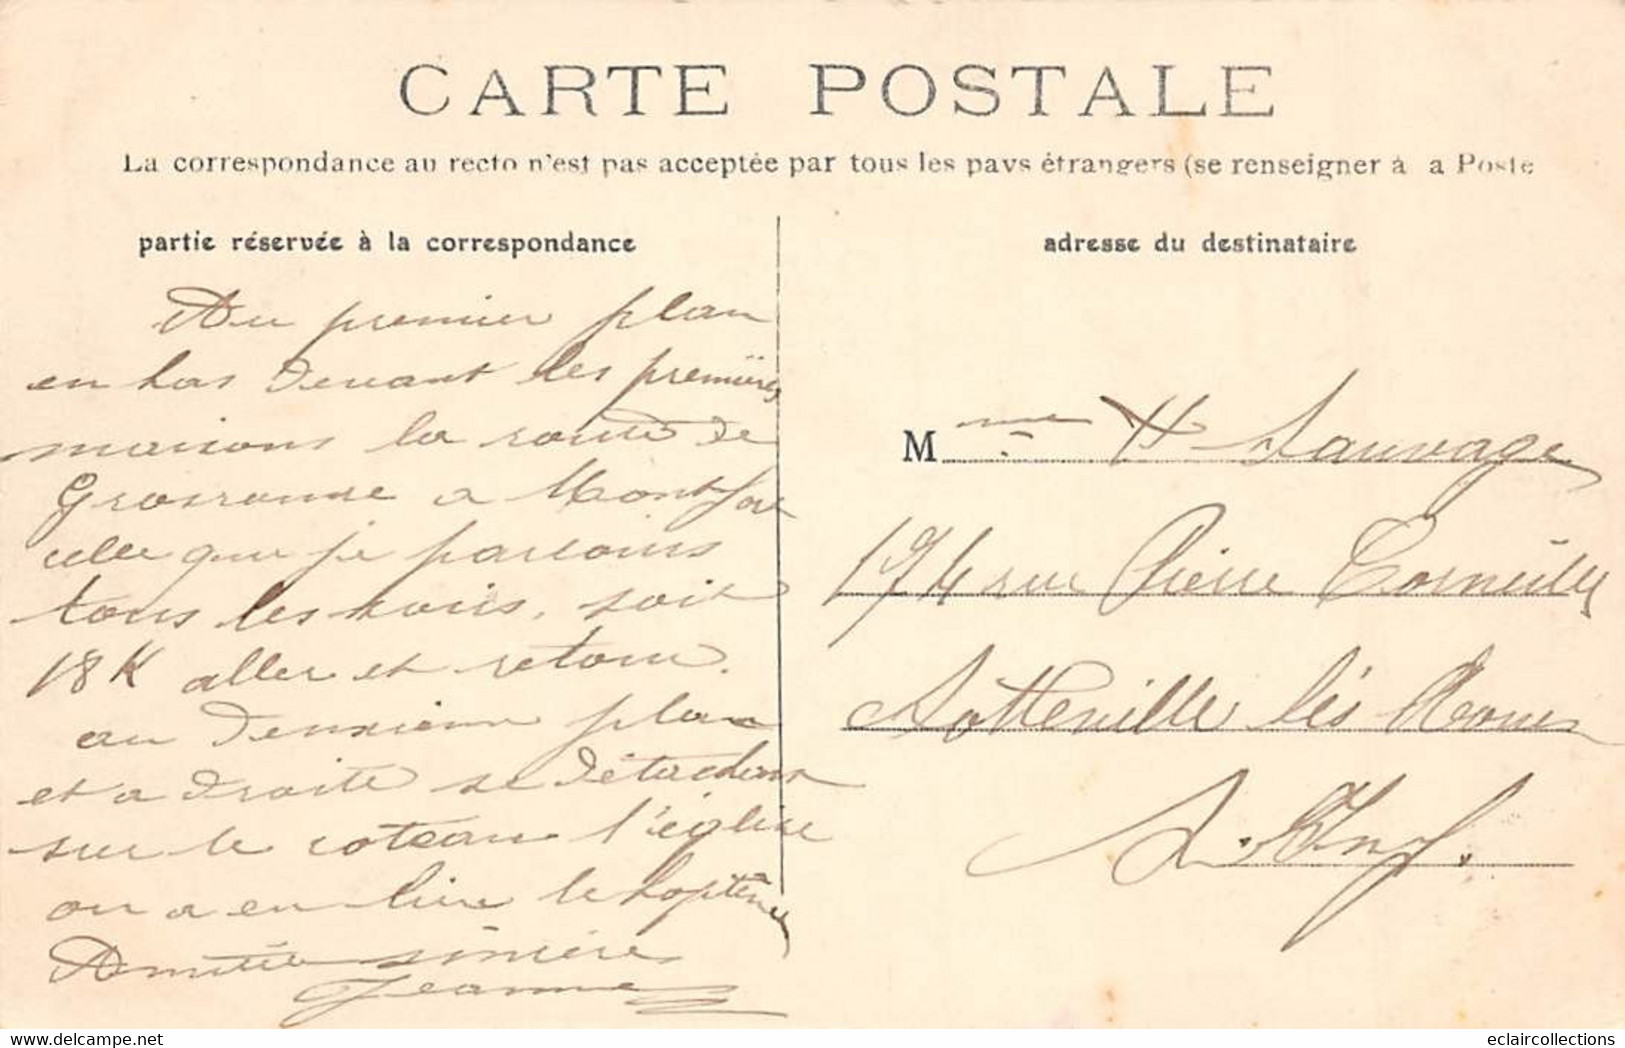 CARTE POSTALE
La correspondance au recto n'est pas acceptée par tous les pays étrangers (se renseigner à a Poste
partie réservée à la correspondance
adresse du destinataire
Au premier plan
en bas devant les premières
maisons la route de
Grosrouvre a Montfor
celle que je parcours
tous les soirs, soit
18 K aller et retour.
au deuxième plan
et a droite se détachant
sur le coteau l'église
ou a eu lieu le baptême
Amitié sincère
Jeanne
Mme H Sauvage
194 rue Pierre Corneille
Sotteville lès Rouen
S. Inf.
eclaircollections
www.delcampe.net